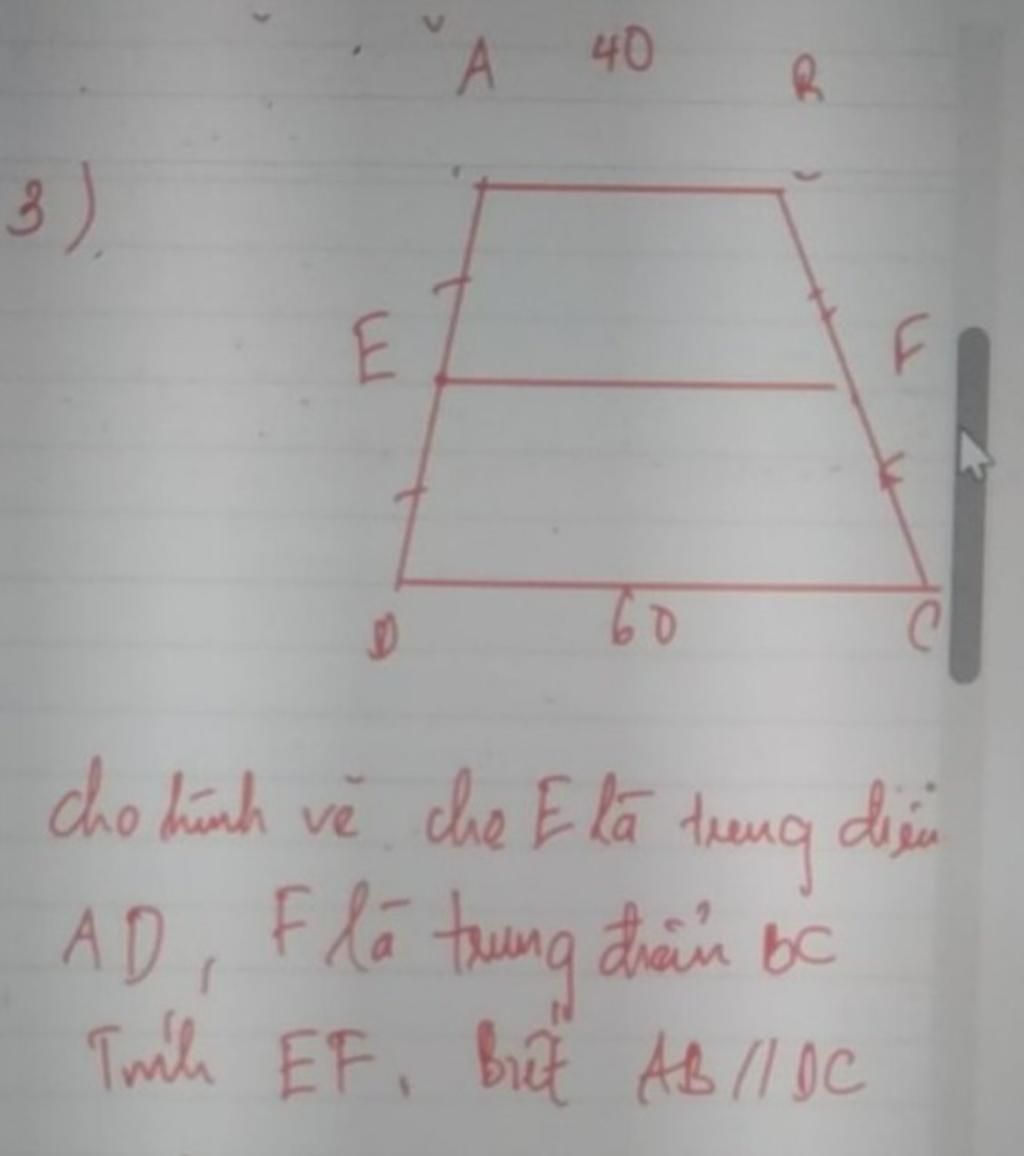 A 40 B
3)
E F
D 60 C
Cho hình vẽ cho E là trung điểm
AD, F là trung điểm BC
Tính EF. Biết AB // DC